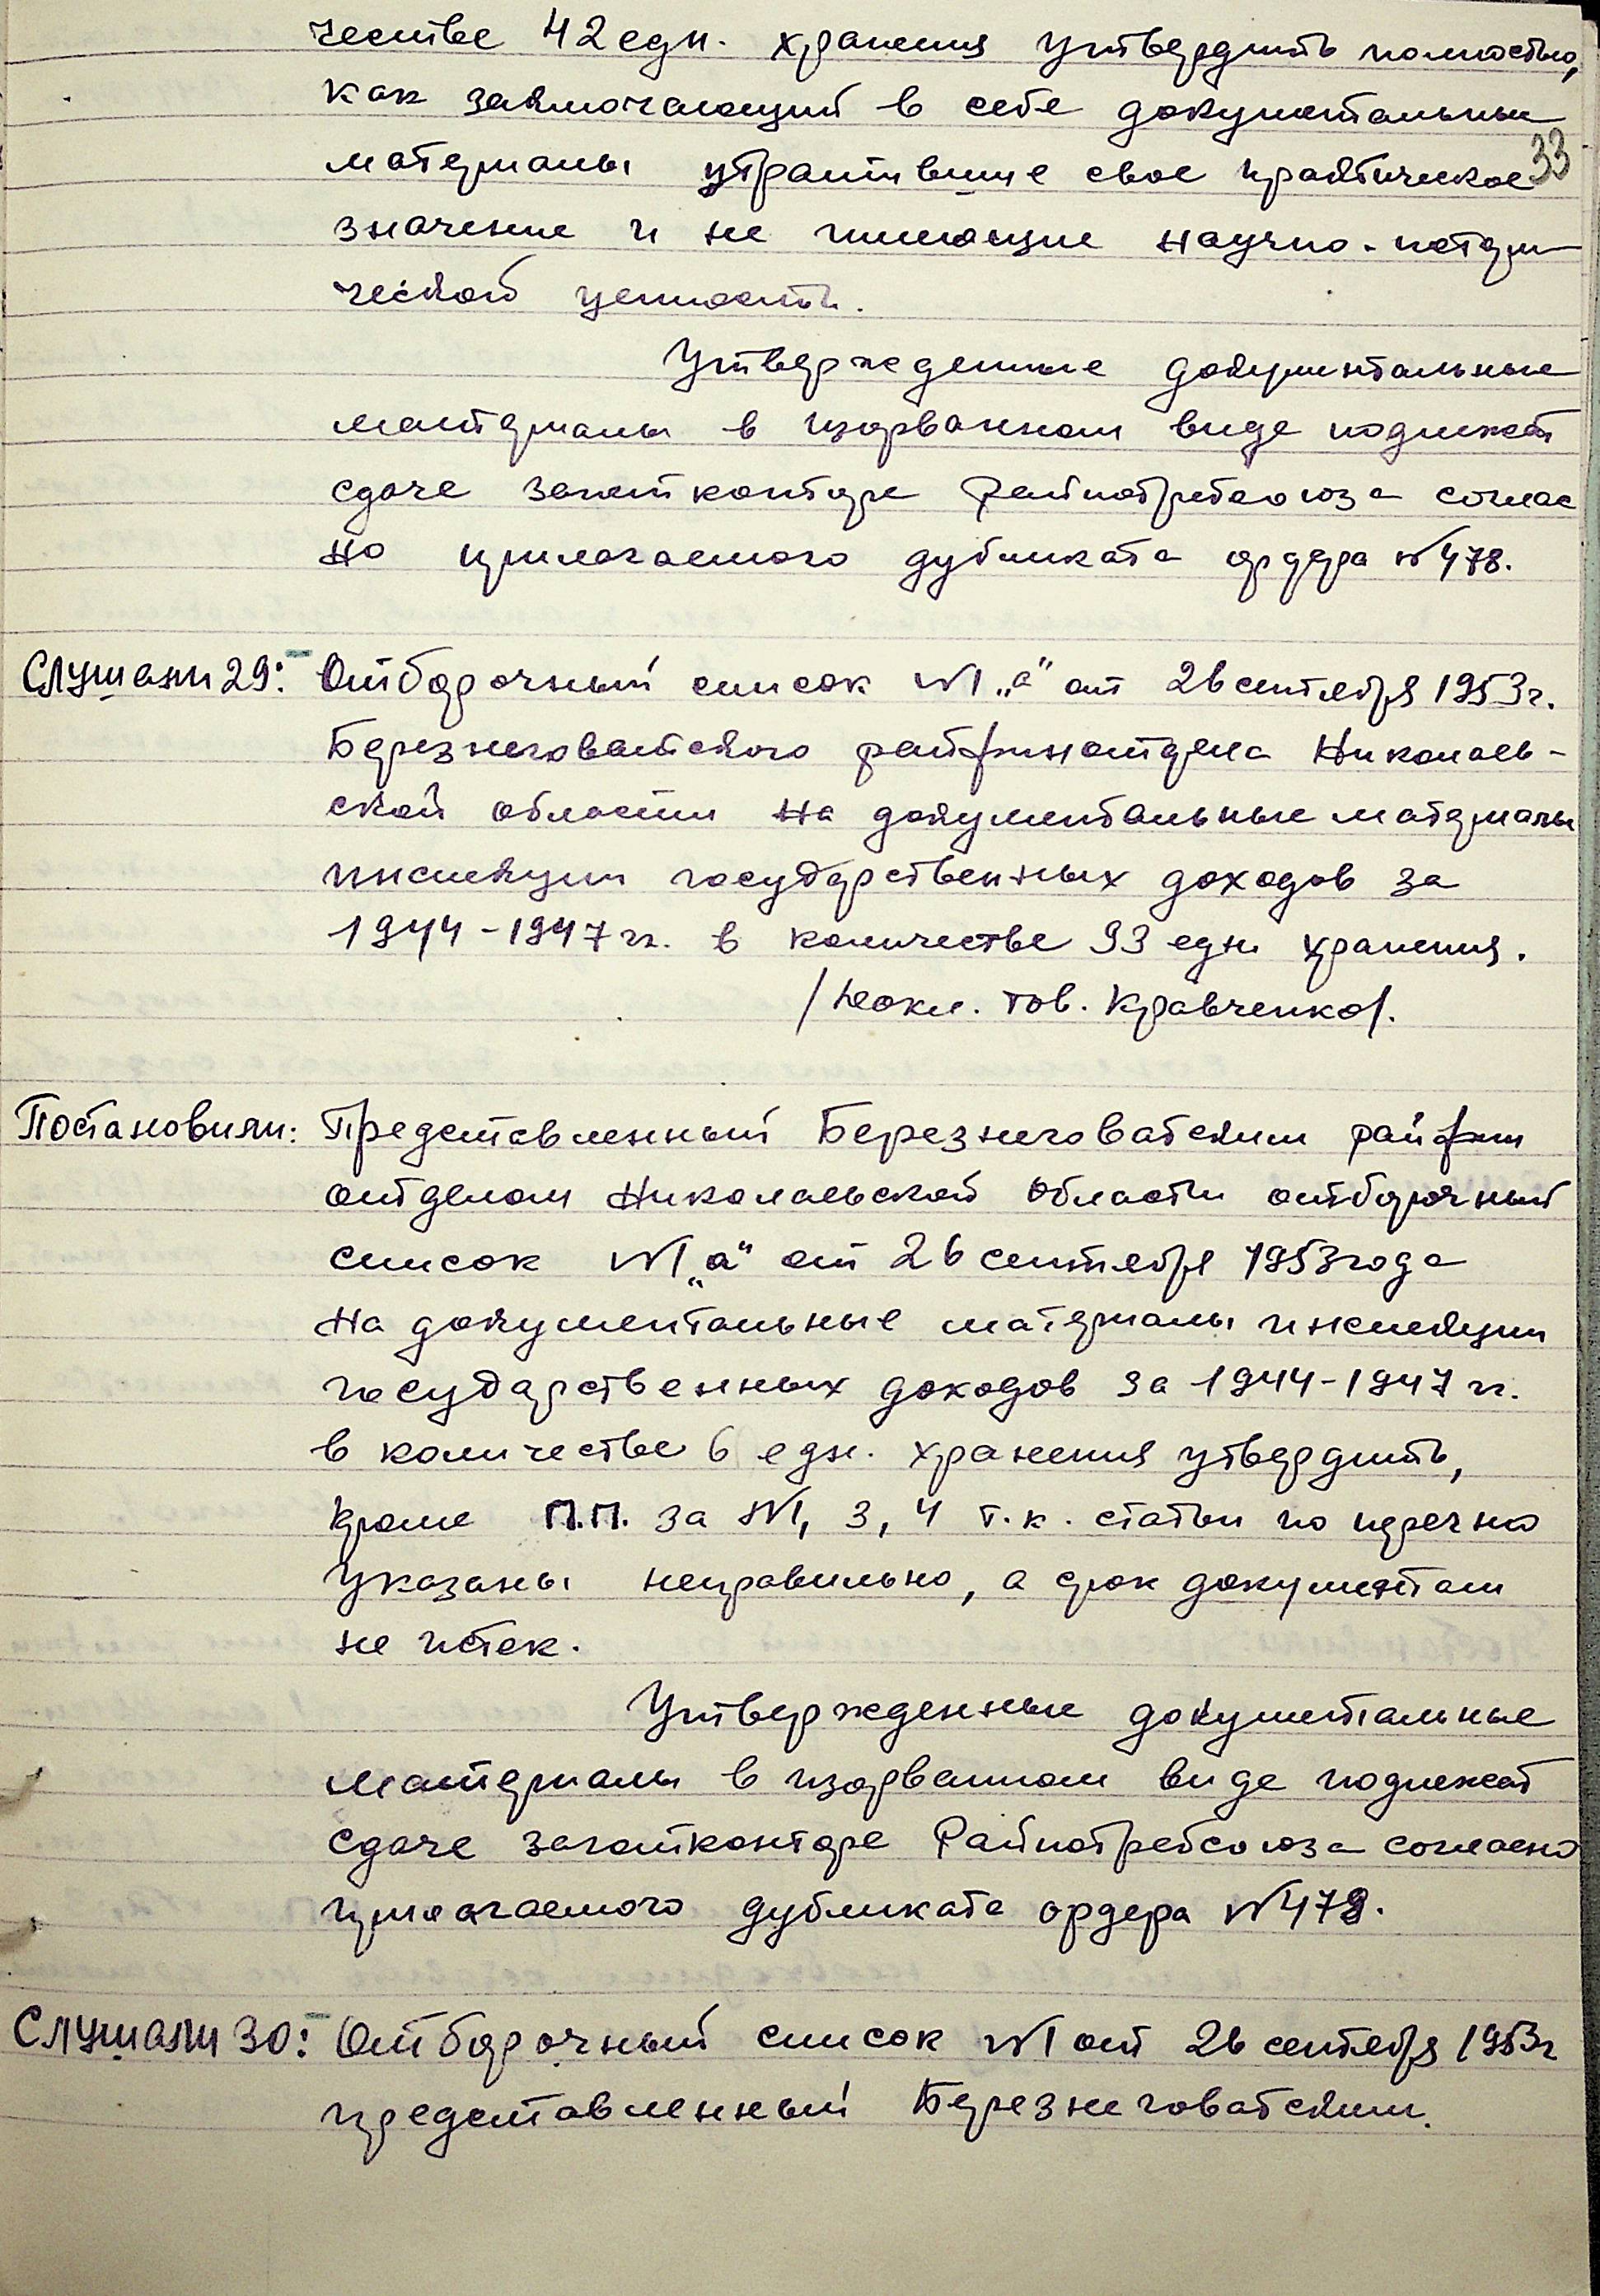 честве 42 едн. хранения утвердить полностью,
как заключающий в себе документальные
33
материалы утратившие свое практическое
значение и не имеющие научно-истори
ческой ценности.
Утвержденные документальные
материалы в изорванном виде подлежат
сдаче заготконторе Райпотребсоюза соглас
но прилагаемого дубликата ордера №478.
Слушали 29: Отборочный список №1 „а" от 26 сентября 1953 г.
Березнеговатского райфинотдела Николаев-
ской области на документальные материалы
инспекции государственных доходов за
1944-1947 гг. в количестве 93 едн хранения.
/Докл. тов. Кравченко/.
Постановили: Представленный Березнеговатским райфин
отделом Николаевской области отборочный
список №1 „а" от 26 сентября 1953 года
на документальные материалы инспекции
государственных доходов за 1944-1947 гг.
в количестве 6 едн. хранения утвердить,
кроме п.п. за №1, 3, 4 т.к. статьи по перечню
указаны неправильно, а срок документам
не истек.
Утвержденные документальные
материалы в изорванном виде подлежат
сдаче заготконторе Райпотребсоюза согласно
прилагаемого дубликата ордера №479.
Слушали 30: Отборочный список №1 от 26 сентября 1953 г
представленный Березнеговатским.